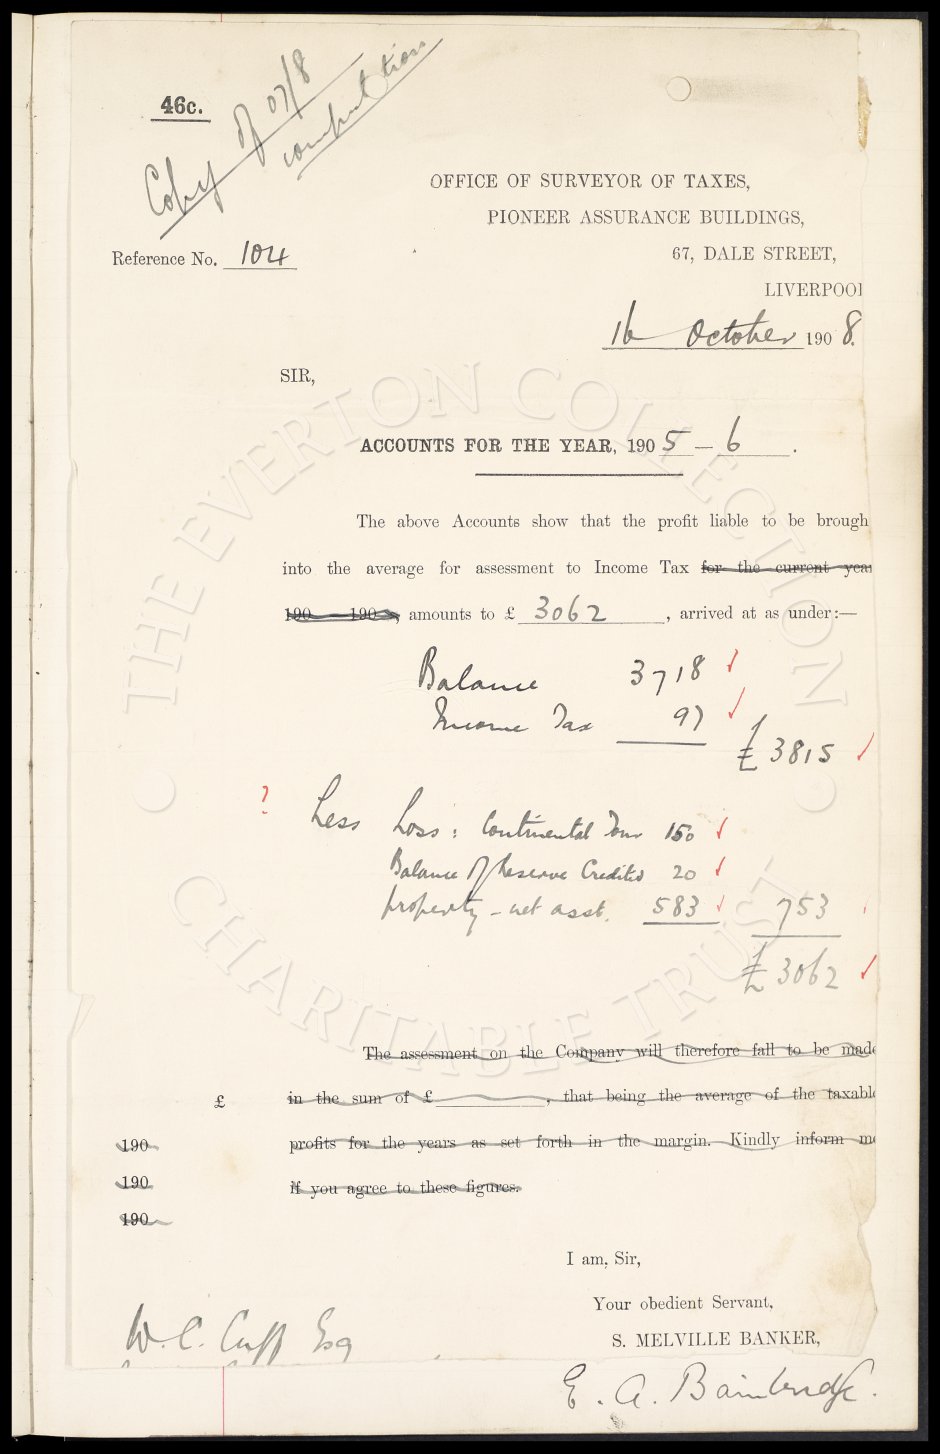 46c.
Copy of 07/8
computation
OFFICE OF SURVEYOR OF TAXES,
PIONEER ASSURANCE BUILDINGS,
67, DALE STREET,
LIVERPOOl
Reference No. 104
16 October 1908.
SIR,
ACCOUNTS FOR THE YEAR, 1905 – 6.
The above Accounts show that the profit liable to be brough
into the average for assessment to Income Tax for the current year
190 190 , amounts to £ 3062 , arrived at as under:—
Balance 3718 ✓
Income Tax 97 ✓
£ 3815 ✓
? Less Loss: Continental Tour 150 ✓
Balance of Reserve Credited 20 ✓
property – net asst. 583 ✓ 753
£ 3062 ✓
The assessment on the Company will therefore fall to be made
£ in the sum of £ , that being the average of the taxable
190 profits for the years as set forth in the margin. Kindly inform me
190 if you agree to these figures.
190
I am, Sir,
Your obedient Servant,
S. MELVILLE BANKER,
W. C. Cuff Esq
E. A. Bainbridge.
THE EVERTON COLLECTION
CHARITABLE TRUST